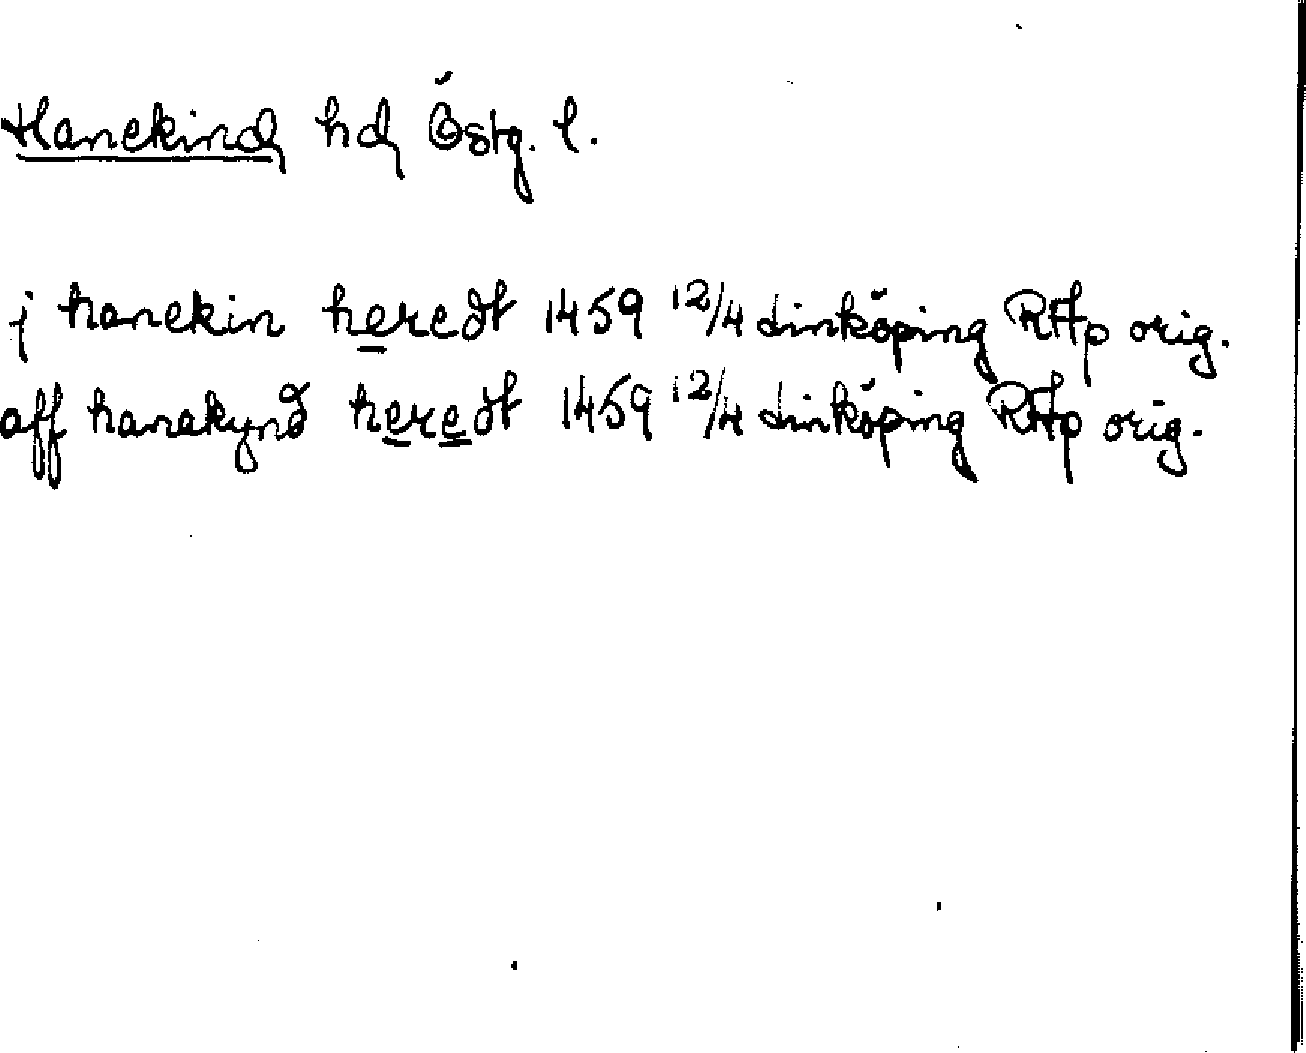 Hanekind hd Östg. l.
j hanekin heredt 1459 12/4 Linköping RAp orig.
aff hanakynd heredt 1459 12/4 Linköping RAp orig.